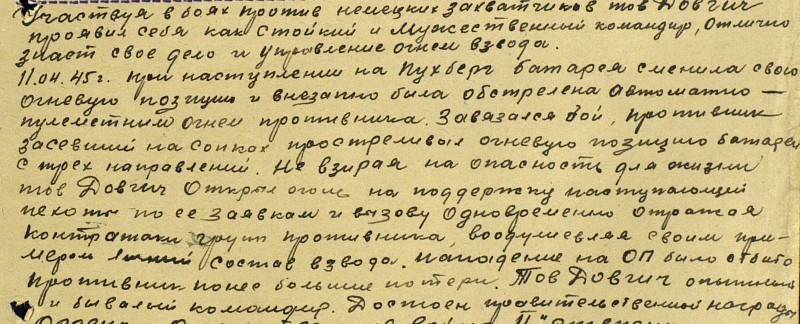 Участвуя в боях против немецких захватчиков тов Довгич
проявил себя как стойкий и мужественный командир, отлично
знает свое дело и управление огнем взвода.
11.04.45г. при наступлении на Пухберг батарея сменила свою
огневую позицию и внезапно была обстреляна автоматно-
пулеметным огнем противника. Завязался бой, противник
засевший на сопках простреливал огневую позицию батареи
с трех направлений. Не взирая на опасность для жизни
тов Довгич открыл огонь на поддержку наступающий
пехоты по ее заявкам и вызову одновременно отражая
контратаки групп противника, воодушевляя своим при-
мером личный состав взвода. Нападение на ОП было отбито
противник понес большие потери. Тов Довгич опытный
и бывалый командир. Достоен правительственной награды
Ордена II